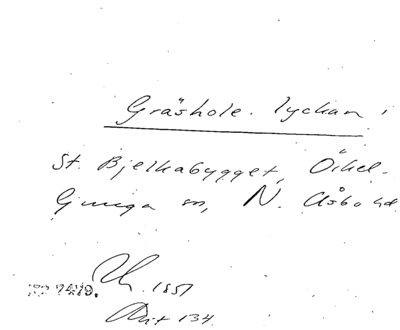 Gräshole. lyckan i
St. Bjelkabygget, Örkel-
ljunga sn, N. Åsbo hd
1851
Akt 134.